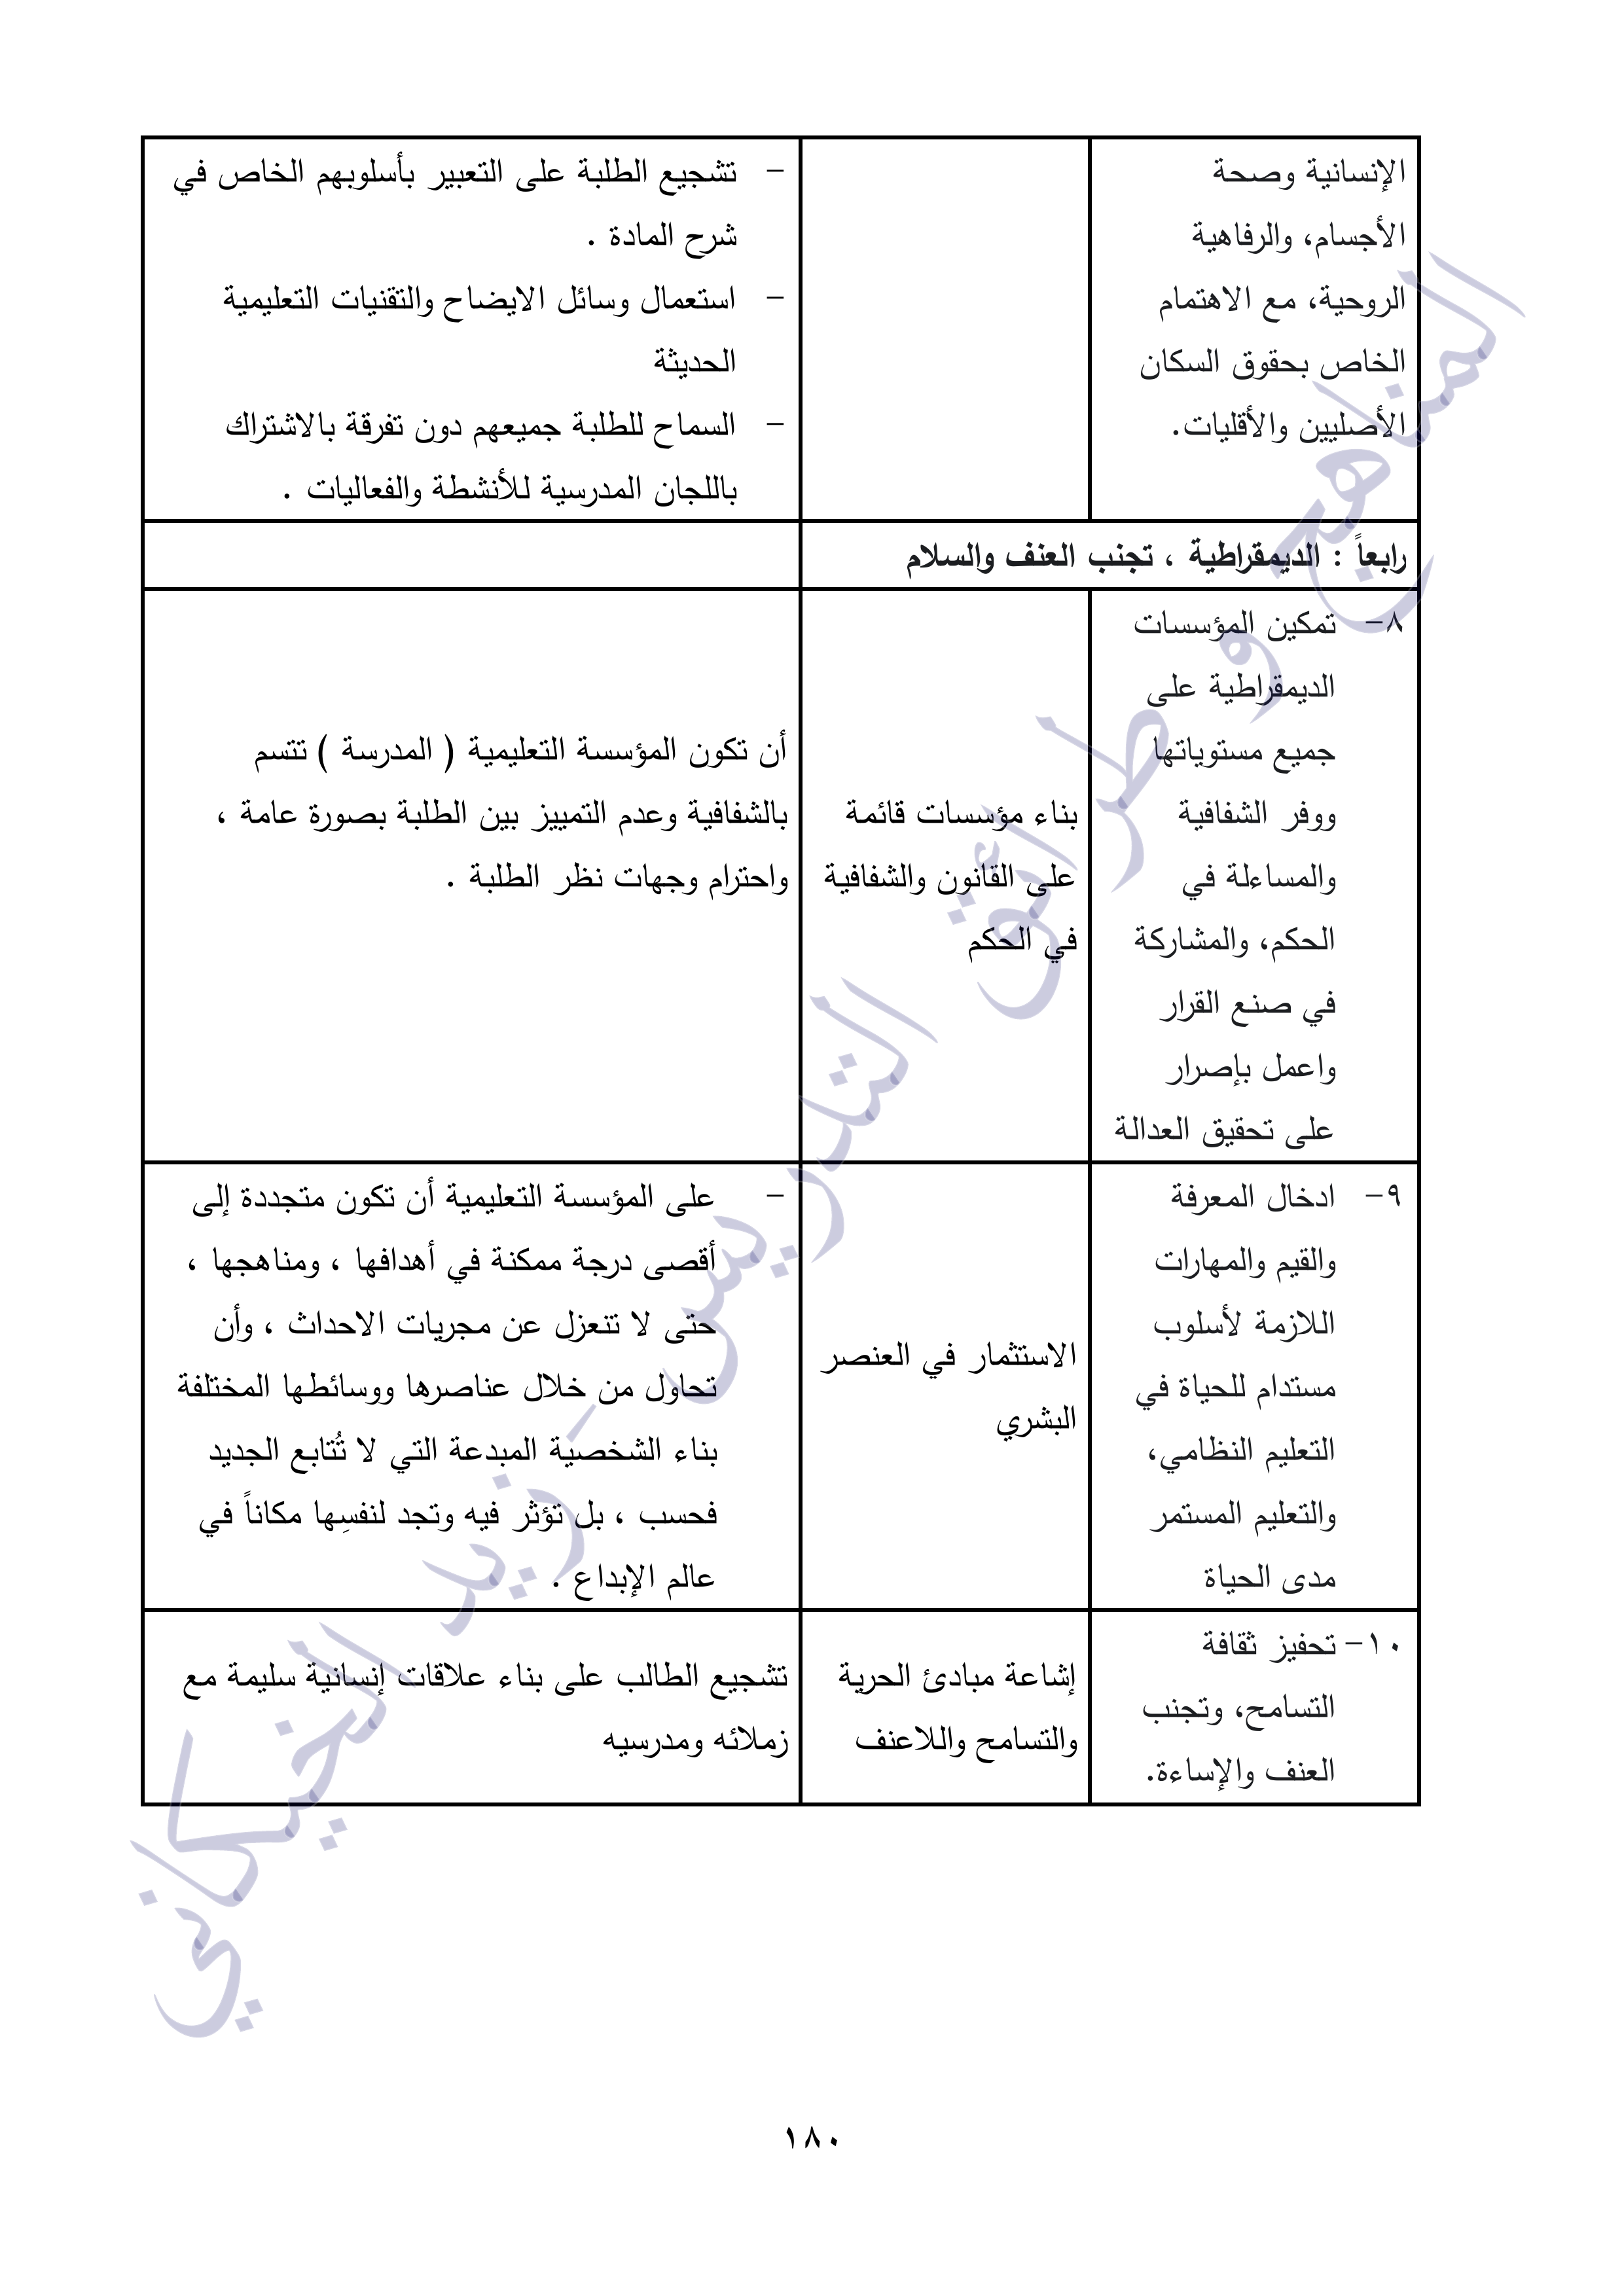 الإنسانية وصحة
الأجسام، والرفاهية
الروحية، مع الاهتمام
الخاص بحقوق السكان
الأصليين والأقليات.
- تشجيع الطلبة على التعبير بأسلوبهم الخاص في
شرح المادة .
- استعمال وسائل الايضاح والتقنيات التعليمية
الحديثة
- السماح للطلبة جميعهم دون تفرقة بالاشتراك
باللجان المدرسية للأنشطة والفعاليات .
رابعاً : الديمقراطية ، تجنب العنف والسلام
٨- تمكين المؤسسات
الديمقراطية على
جميع مستوياتها
ووفر الشفافية
والمساءلة في
الحكم، والمشاركة
في صنع القرار
واعمل بإصرار
على تحقيق العدالة
بناء مؤسسات قائمة
على القانون والشفافية
في الحكم
أن تكون المؤسسة التعليمية ( المدرسة ) تتسم
بالشفافية وعدم التمييز بين الطلبة بصورة عامة ،
واحترام وجهات نظر الطلبة .
٩- ادخال المعرفة
والقيم والمهارات
اللازمة لأسلوب
مستدام للحياة في
التعليم النظامي،
والتعليم المستمر
مدى الحياة
الاستثمار في العنصر
البشري
- على المؤسسة التعليمية أن تكون متجددة إلى
أقصى درجة ممكنة في أهدافها ، ومناهجها ،
حتى لا تنعزل عن مجريات الاحداث ، وأن
تحاول من خلال عناصرها ووسائطها المختلفة
بناء الشخصية المبدعة التي لا تُتابع الجديد
فحسب ، بل تؤثر فيه وتجد لنفسِها مكاناً في
عالم الإبداع .
١٠- تحفيز ثقافة
التسامح، وتجنب
العنف والإساءة.
إشاعة مبادئ الحرية
والتسامح واللاعنف
تشجيع الطالب على بناء علاقات إنسانية سليمة مع
زملائه ومدرسيه
المناهج و طرائق التدريس - زيد الخيكاني
١٨٠